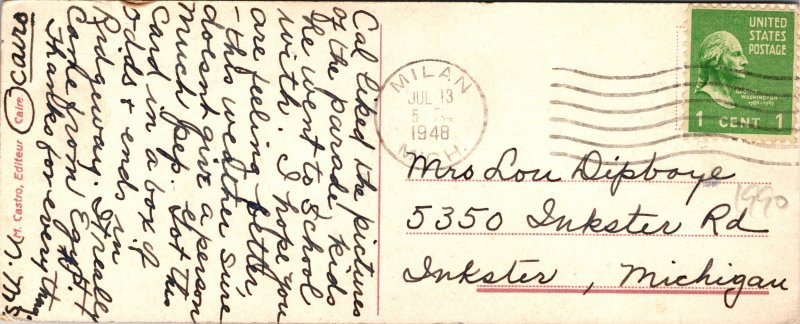 Cal liked the pictures
of the parade kids
he went to School
with. I hope you
are feeling better,
- this weather sure
doesn't give a person
much pep. Got this
card in a box of
odds & ends in
Ridgeway. It really
Came from Egypt.
Thanks for everything
Cairo
M. Castro, Editeur Caire
MILAN
JUL 13
5
1948
MICH.
UNITED
STATES
POSTAGE
WASHINGTON
1 CENT 1
Mrs Lou Dipboye
5350 Inkster Rd
Inkster, Michigan
1990